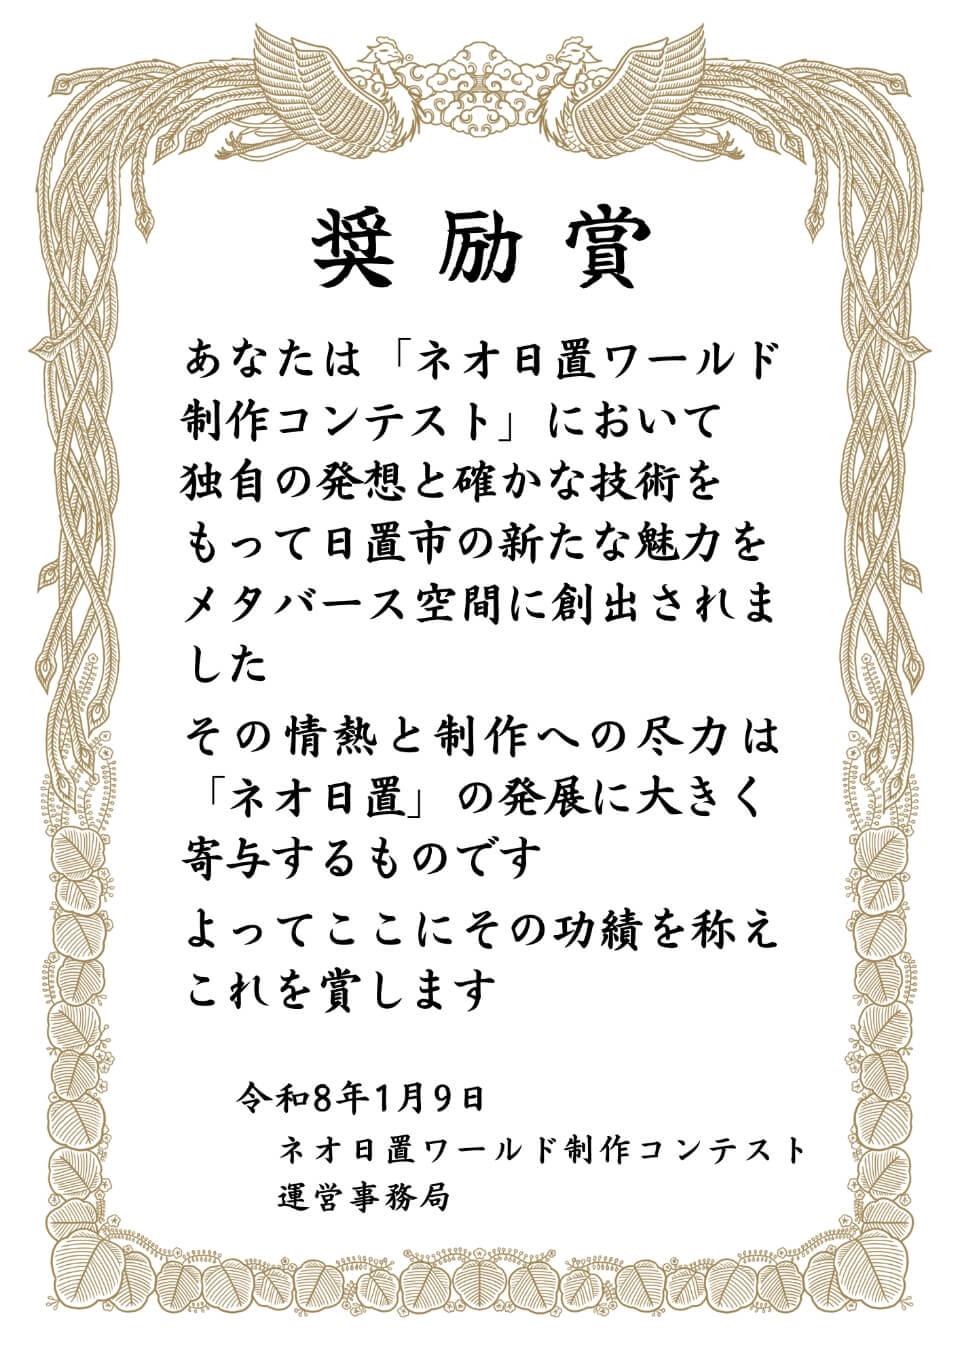 奨励賞
あなたは「ネオ日置ワールド
制作コンテスト」において
独自の発想と確かな技術を
もって日置市の新たな魅力を
メタバース空間に創出されま
した
その情熱と制作への尽力は
「ネオ日置」の発展に大きく
寄与するものです
よってここにその功績を称え
これを賞します
令和8年1月9日
ネオ日置ワールド制作コンテスト
運営事務局